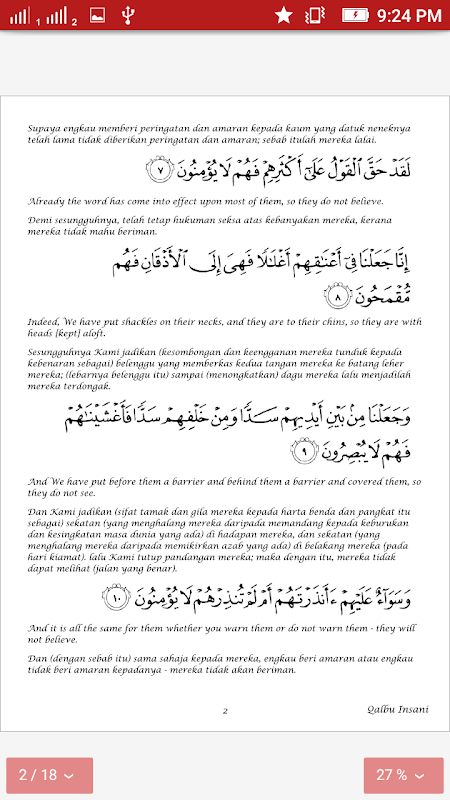 1 2 9:24 PM
Supaya engkau memberi peringatan dan amaran kepada kaum yang datuk neneknya
telah lama tidak diberikan peringatan dan amaran; sebab itulah mereka lalai.
لَقَدْ حَقَّ الْقَوْلُ عَلَىٰ أَكْثَرِهِمْ فَهُمْ لَا يُؤْمِنُونَ ٧
Already the word has come into effect upon most of them, so they do not believe.
Demi sesungguhnya, telah tetap hukuman seksa atas kebanyakan mereka, kerana
mereka tidak mahu beriman.
إِنَّا جَعَلْنَا فِي أَعْنَاقِهِمْ أَغْلَالًا فَهِيَ إِلَى الْأَذْقَانِ فَهُم
مُّقْمَحُونَ ٨
Indeed, We have put shackles on their necks, and they are to their chins, so they are with
heads [kept] aloft.
Sesungguhnya Kami jadikan (kesombongan dan keengganan mereka tunduk kepada
kebenaran sebagai) belenggu yang memberkas kedua tangan mereka ke batang leher
mereka; (lebarnya belenggu itu) sampai (menongkatkan) dagu mereka lalu menjadilah
mereka terdongak.
وَجَعَلْنَا مِن بَيْنِ أَيْدِيهِمْ سَدًّا وَمِنْ خَلْفِهِمْ سَدًّا فَأَغْشَيْنَاهُمْ
فَهُمْ لَا يُبْصِرُونَ ٩
And We have put before them a barrier and behind them a barrier and covered them, so
they do not see.
Dan Kami jadikan (sifat tamak dan gila mereka kepada harta benda dan pangkat itu
sebagai) sekatan (yang menghalang mereka daripada memandang kepada keburukan
dan kesingkatan masa dunia yang ada) di hadapan mereka, dan sekatan (yang
menghalang mereka daripada memikirkan azab yang ada) di belakang mereka (pada
hari kiamat). lalu Kami tutup pandangan mereka; maka dengan itu, mereka tidak
dapat melihat (jalan yang benar).
وَسَوَاءٌ عَلَيْهِمْ ءَأَنذَرْتَهُمْ أَمْ لَمْ تُنذِرْهُمْ لَا يُؤْمِنُونَ ١٠
And it is all the same for them whether you warn them or do not warn them - they will
not believe.
Dan (dengan sebab itu) sama sahaja kepada mereka, engkau beri amaran atau engkau
tidak beri amaran kepadanya - mereka tidak akan beriman.
2 Qalbu Insani
2 / 18 27 %